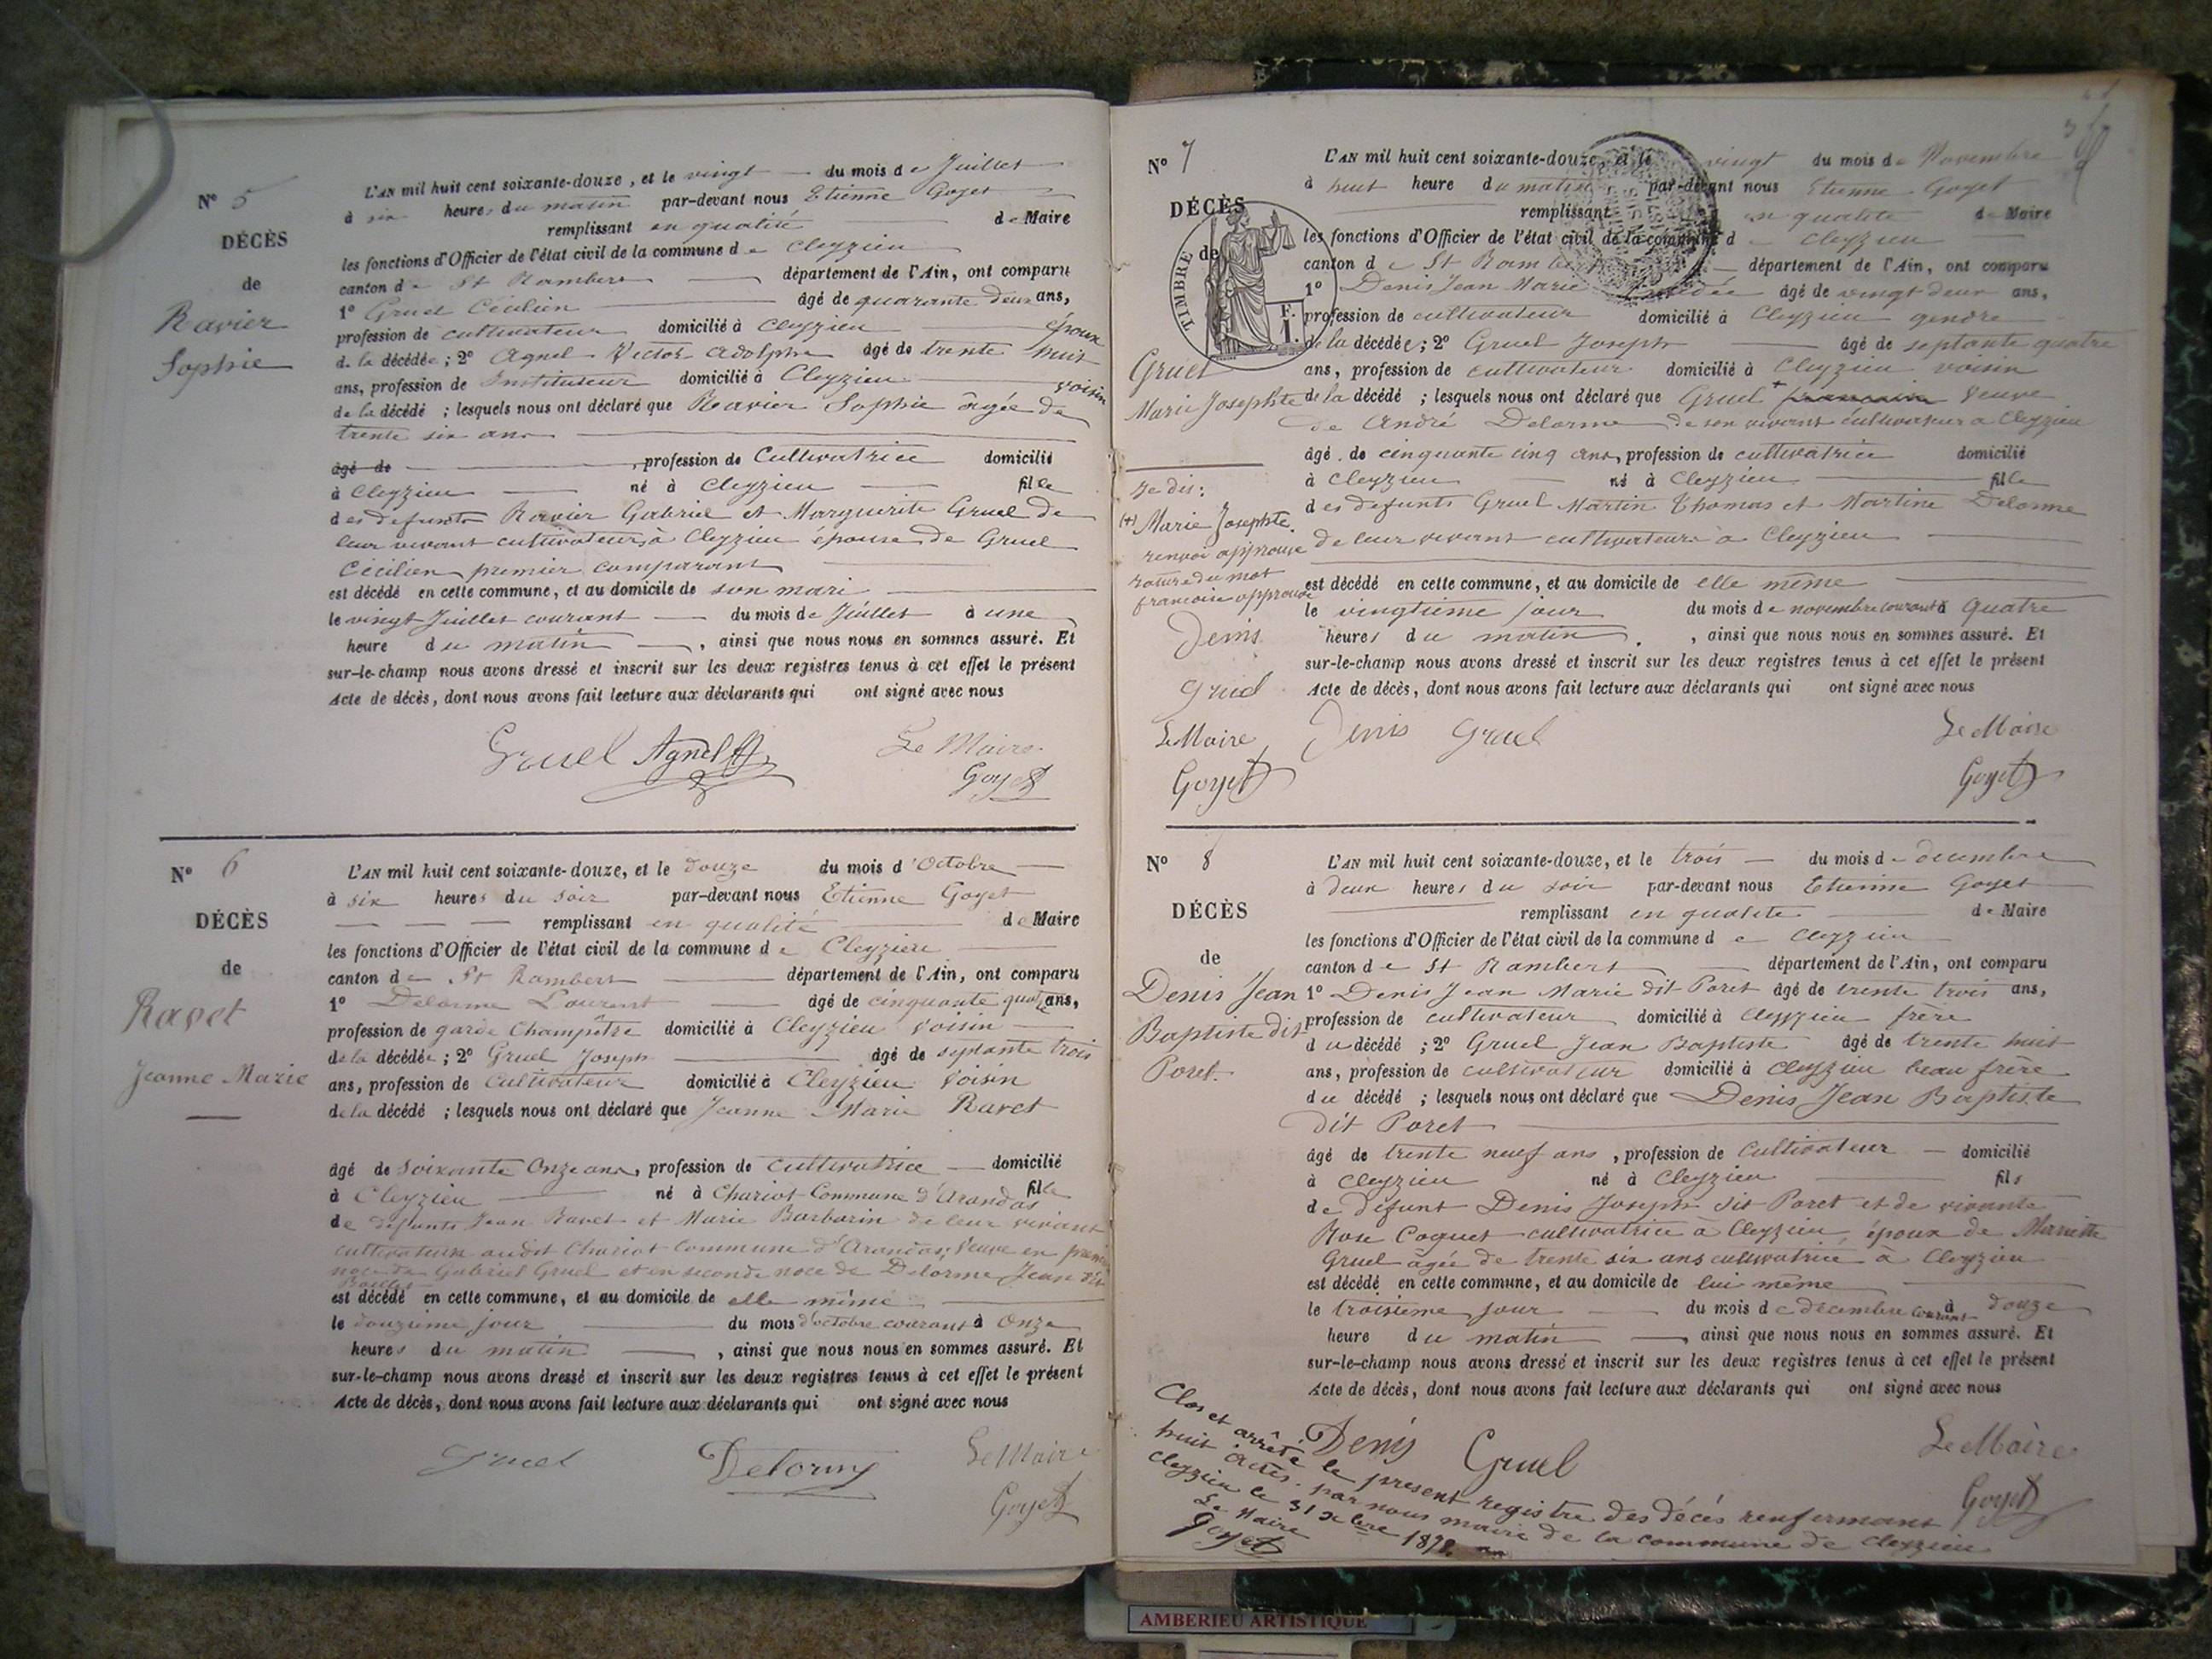 N° 5
DÉCÈS
de
Ravier
Sophie
L'AN mil huit cent soixante-douze, et le vingt du mois de Juillet
à six heures du matin par-devant nous Etienne Goyet
remplissant en qualité de Maire
les fonctions d'Officier de l'état civil de la commune de Cleyzieu
canton de St Rambert département de l'Ain, ont comparu
1° Gruel Cécilien âgé de quarante deux ans,
profession de cultivateur domicilié à Cleyzieu époux
de la décédée ; 2° Agnel Victor Adolphe âgé de trente huit
ans, profession de Instituteur domicilié à Cleyzieu voisin
de la décédé ; lesquels nous ont déclaré que Ravier Sophie âgée de
trente six ans
âgé de , profession de Cultivatrice domicilié
à Cleyzieu né à Cleyzieu fille
des defunts Ravier Gabriel et Marguerite Gruel de
leur vivant cultivateurs à Cleyzieu épouse de Gruel
Cécilien premier comparant
est décédé en cette commune, et au domicile de son mari
le vingt Juillet courant du mois de Juillet à une
heure du matin , ainsi que nous nous en sommes assuré. Et
sur-le-champ nous avons dressé et inscrit sur les deux registres tenus à cet effet le présent
Acte de décès, dont nous avons fait lecture aux déclarants qui ont signé avec nous
Gruel Agnel Le Maire
Goyet
N° 6
DÉCÈS
de
Ravet
Jeanne Marie
L'AN mil huit cent soixante-douze, et le douze du mois d'Octobre
à six heures du soir par-devant nous Etienne Goyet
remplissant en qualité de Maire
les fonctions d'Officier de l'état civil de la commune de Cleyzieu
canton de St Rambert département de l'Ain, ont comparu
1° Delorme Laurent âgé de cinquante quatre ans,
profession de garde Champêtre domicilié à Cleyzieu voisin
de la décédée ; 2° Gruel Joseph âgé de septante trois
ans, profession de Cultivateur domicilié à Cleyzieu voisin
de la décédé ; lesquels nous ont déclaré que Jeanne Marie Ravet
âgé de soixante Onze ans, profession de cultivatrice domicilié
à Cleyzieu né à Chariot Commune d'Arandas fille
de defunts Jean Ravet et Marie Barbarin de leur vivant
cultivateurs audit Chariot commune d'Arandas, veuve en premie
noce de Gabriel Gruel et en seconde noce de Delorme Jean
est décédé en cette commune, et au domicile de elle même
le douzième jour du mois d'octobre courant à Onze
heures du matin , ainsi que nous nous en sommes assuré. Et
sur-le-champ nous avons dressé et inscrit sur les deux registres tenus à cet effet le présent
Acte de décès, dont nous avons fait lecture aux déclarants qui ont signé avec nous
Gruel Delorme Le Maire
Goyet
N° 7
DÉCÈS
de
TIMBRE
F.
1.
Gruel
Marie Josephte
L'AN mil huit cent soixante-douze, et le vingt du mois de Novembre
à huit heure du matin par-devant nous Etienne Goyet
remplissant en qualité de Maire
les fonctions d'Officier de l'état civil de la commune d Cleyzieu
canton de St Rambert département de l'Ain, ont comparu
1° Denis Jean Marie âgé de vingt deux ans,
profession de cultivateur domicilié à Cleyzieu gendre
de la décédée ; 2° Gruel Joseph âgé de septante quatre
ans, profession de cultivateur domicilié à Cleyzieu voisin
de la décédé ; lesquels nous ont déclaré que Gruel + francoise Veuve
de André Delorme de son vivant cultivateur a Cleyzieu
âgé de cinquante cinq ans, profession de cultivatrice domicilié
à Cleyzieu né à Cleyzieu fille
des defunts Gruel Martin Thomas et Martine Delorme
de leur vivant cultivateurs à Cleyzieu
est décédé en cette commune, et au domicile de elle même
le vingtième jour du mois de novembre courant à quatre
heures du matin , ainsi que nous nous en sommes assuré. Et
sur-le-champ nous avons dressé et inscrit sur les deux registres tenus à cet effet le présent
Acte de décès, dont nous avons fait lecture aux déclarants qui ont signé avec nous
Je dis:
(+) Marie Josephte
renvoi approuvé
rature du mot
francoise approuvé
Denis
Gruel
Le Maire
Goyet
Denis Gruel Le Maire
Goyet
N° 8
DÉCÈS
de
Denis Jean
Baptiste dit
Poret.
L'AN mil huit cent soixante-douze, et le trois du mois de decembre
à deux heures du soir par-devant nous Etienne Goyet
remplissant en qualité de Maire
les fonctions d'Officier de l'état civil de la commune de Cleyzieu
canton de St Rambert département de l'Ain, ont comparu
1° Denis Jean Marie dit Poret âgé de trente trois ans,
profession de cultivateur domicilié à Cleyzieu frère
du décédé ; 2° Gruel Jean Baptiste âgé de trente huit
ans, profession de cultivateur domicilié à Cleyzieu beau frère
du décédé ; lesquels nous ont déclaré que Denis Jean Baptiste
dit Poret
âgé de trente neuf ans , profession de Cultivateur domicilié
à Cleyzieu né à Cleyzieu fils
de défunt Denis Joseph dit Poret et de vivante
Rose Coquet cultivatrice à Cleyzieu, époux de Mariette
Gruel âgée de trente six ans cultivatrice à Cleyzieu
est décédé en cette commune, et au domicile de lui même
le troisième jour du mois de decembre courant à douze
heure du matin , ainsi que nous nous en sommes assuré. Et
sur-le-champ nous avons dressé et inscrit sur les deux registres tenus à cet effet le présent
Acte de décès, dont nous avons fait lecture aux déclarants qui ont signé avec nous
Denis Gruel Le Maire
Goyet
Clos et arrêté le present registre des décés renfermant
huit actes. par nous maire de la commune de Cleyzieu
Cleyzieu le 31 xbre 1872.
Le Maire
Goyet
AMBERIEU ARTISTIQUE